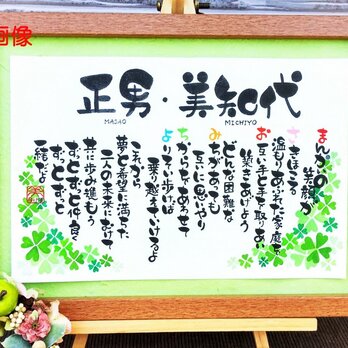 画像
正男・美知代
MASAO
MICHIYO
まんかいの
笑顔が
さきほこる
温もりあふれた家庭を
お互い手と手を取りあい
築きあげよう
どんな困難な
みちがあっても
互いに思いやり
ちからをあわせて
よりそい歩けば
乗り越えていけるよ
これから
夢と希望に満ちた
二人の未来にむけて
共に歩み進もう
ずっとずっと仲良く
ずっとずっと
一緒だよ